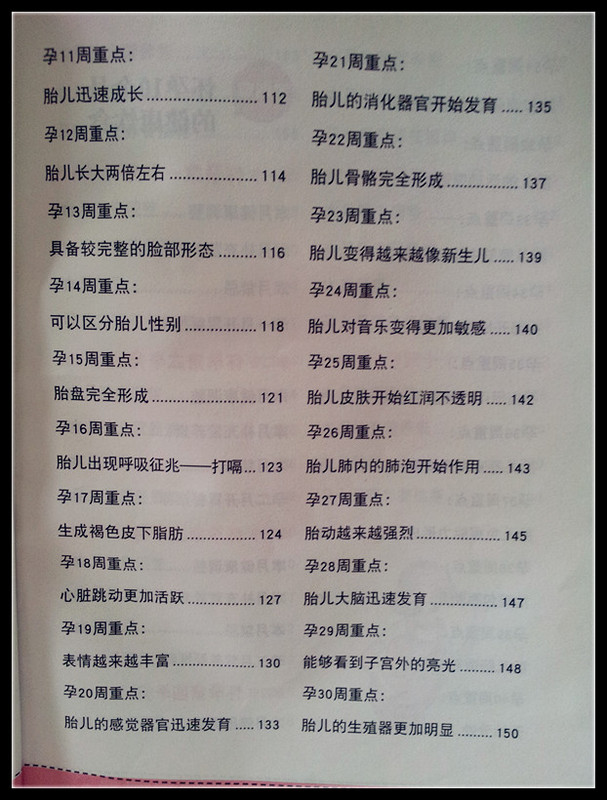 孕11周重点:
胎儿迅速成长........................112
孕12周重点:
胎儿长大两倍左右...................114
孕13周重点:
具备较完整的脸部形态.........116
孕14周重点:
可以区分胎儿性别................118
孕15周重点:
胎盘完全形成.......................121
孕16周重点:
胎儿出现呼吸征兆——打嗝...123
孕17周重点:
生成褐色皮下脂肪...............124
孕18周重点:
心脏跳动更加活跃...............127
孕19周重点:
表情越来越丰富..................130
孕20周重点:
胎儿的感觉器官迅速发育.....133
孕21周重点:
胎儿的消化器官开始发育.......135
孕22周重点:
胎儿骨骼完全形成................137
孕23周重点:
胎儿变得越来越像新生儿.....139
孕24周重点:
胎儿对音乐变得更加敏感.....140
孕25周重点:
胎儿皮肤开始红润不透明.....142
孕26周重点:
胎儿肺内的肺泡开始作用.....143
孕27周重点:
胎动越来越强烈...................145
孕28周重点:
胎儿大脑迅速发育...............147
孕29周重点:
能够看到子宫外的亮光.........148
孕30周重点:
胎儿的生殖器更加明显.........150